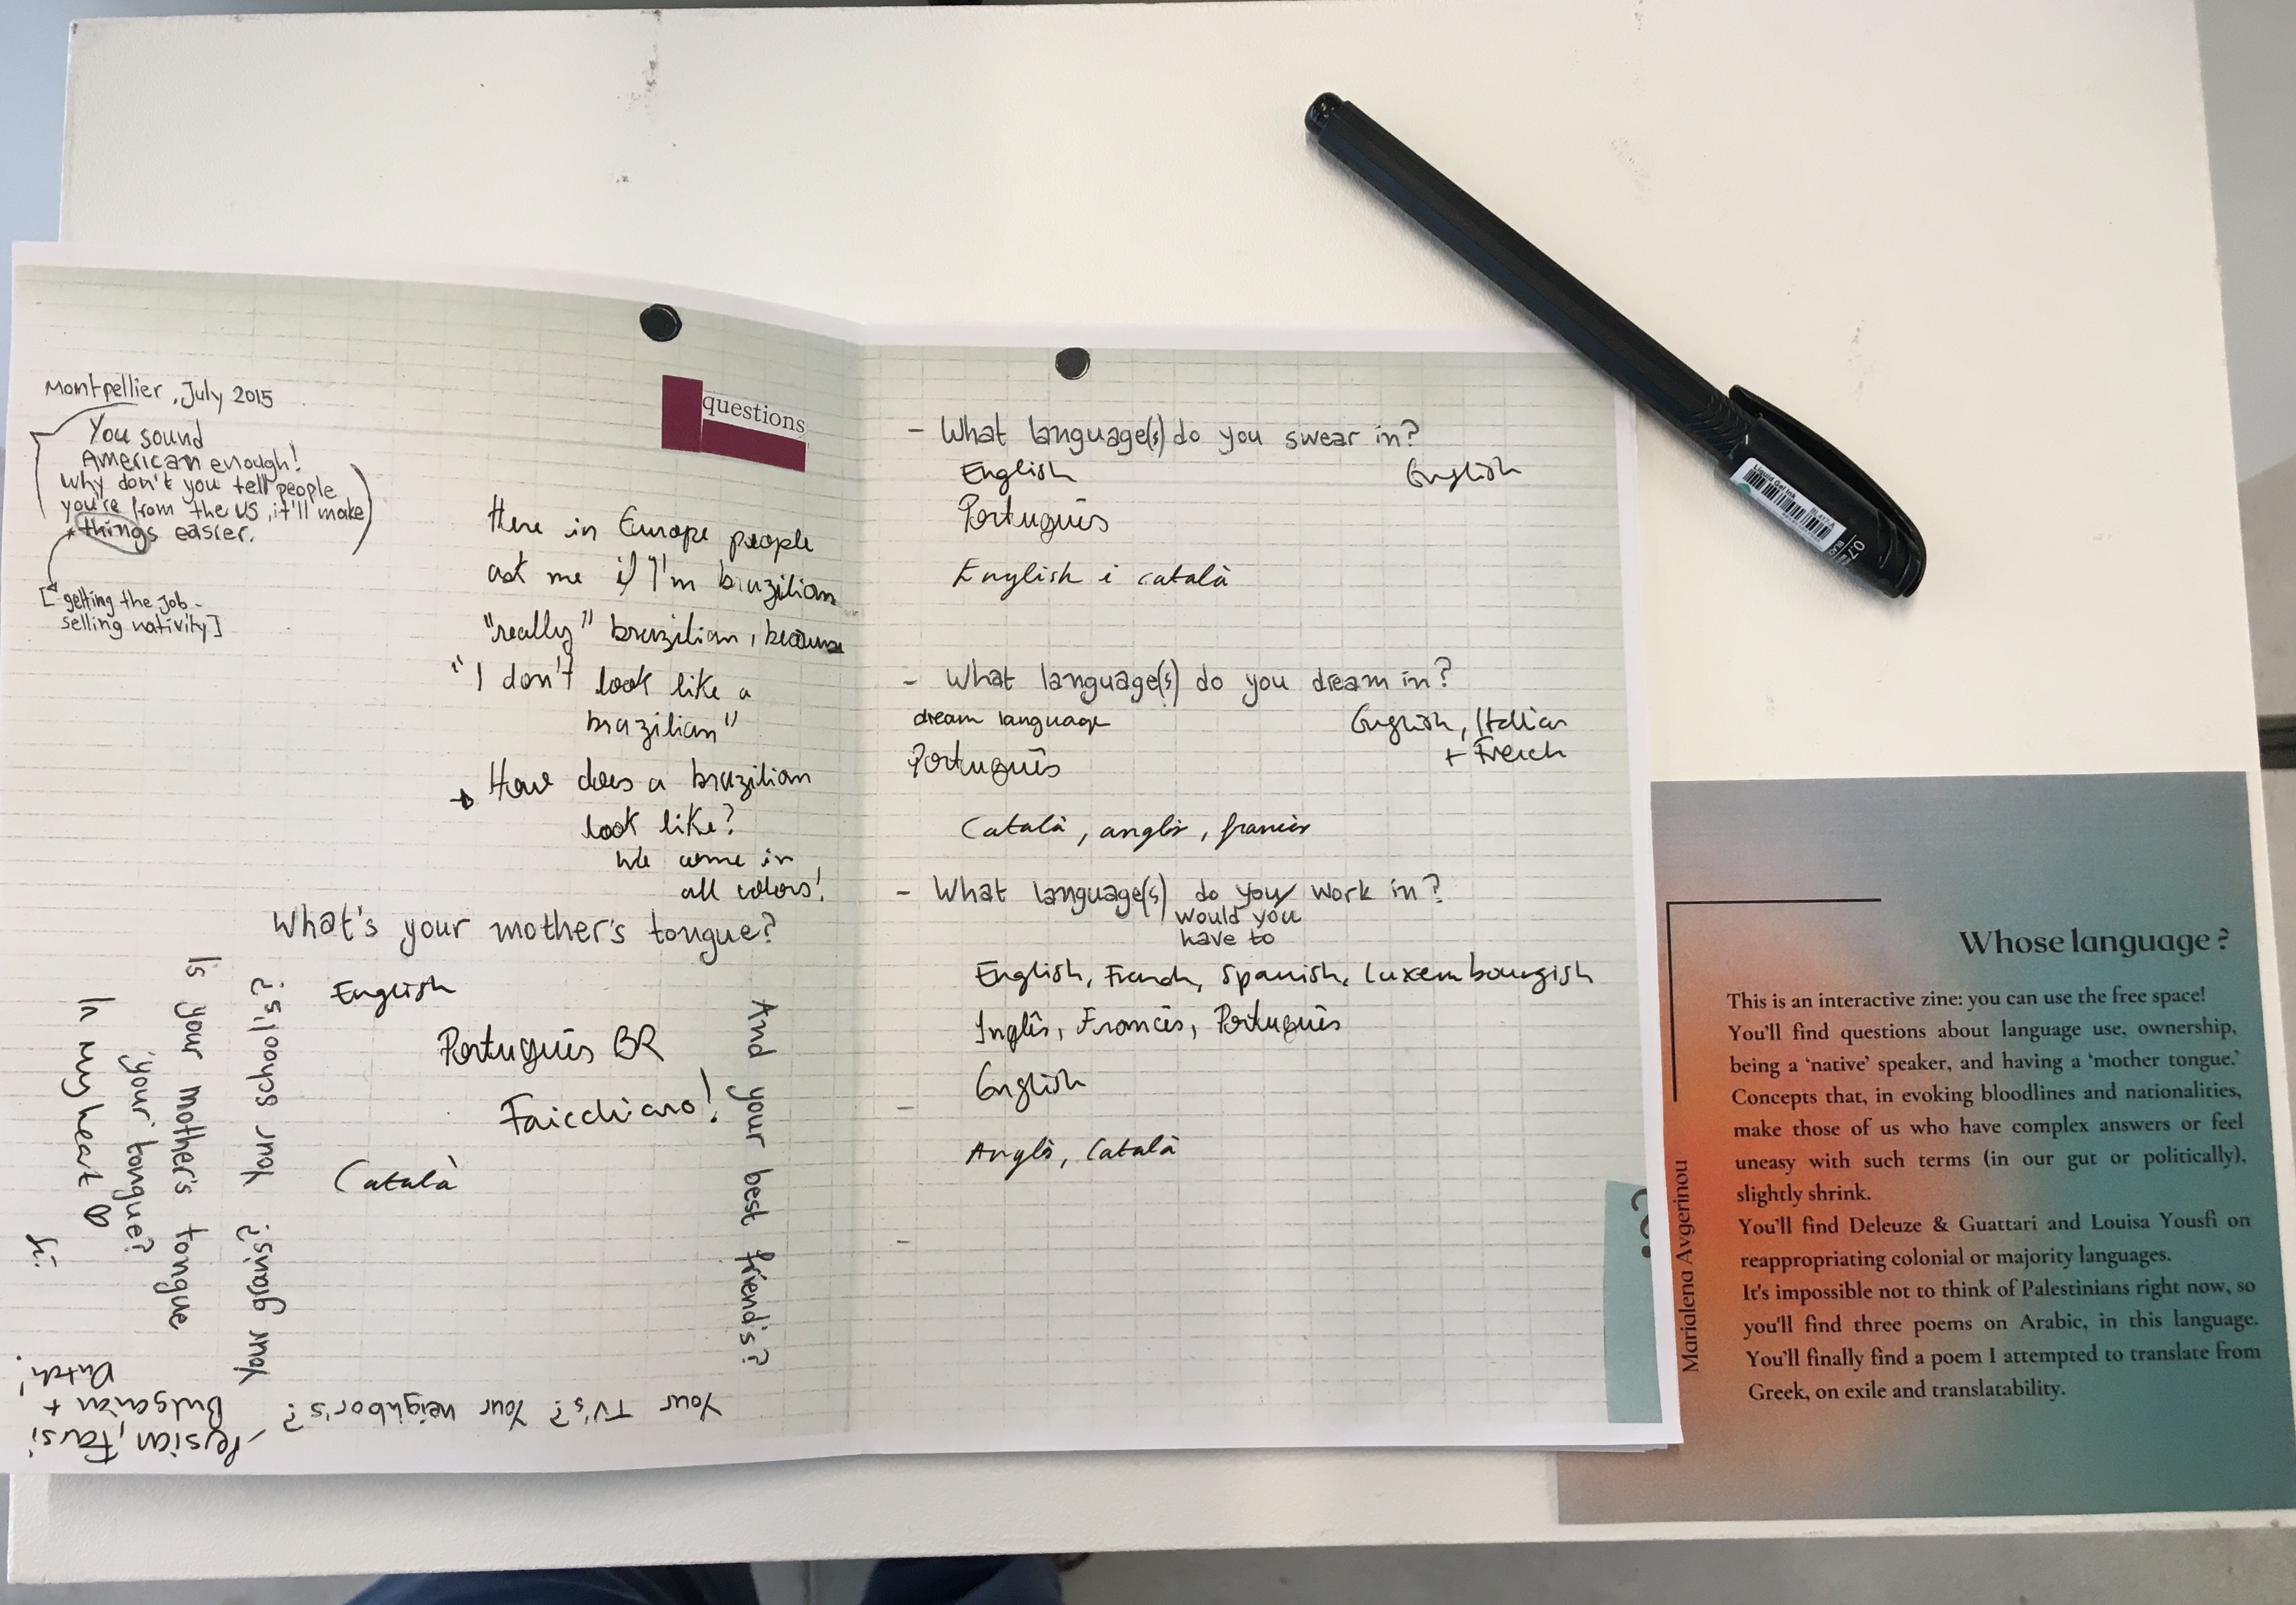 Montpellier, July 2015
You sound
American enough!
why don't you tell people
you're from the US, it'll make
* things easier.
[ getting the job -
selling nativity ]
questions
Here in Europe people
ask me if I'm brazilian
"really" brazilian, because
"I don't look like a
brazilian"
How does a brazilian
look like?
We come in
all colors!
What's your mother's tongue?
English
Português BR
Faicchiano!
Català
And your best friend's?
Your TV's? Your neighbor's?
Your school's?
Your gran's?
Is your mother's tongue
'your' tongue?
In my heart
Persian, Farsi
Bulgarian +
Dutch!
- What language(s) do you swear in?
English
English
Português
English i català
- What language(s) do you dream in?
dream language
English, Italian
+ French
Português
Català, anglès, francès
- What language(s) do you work in?
would you
have to
English, French, Spanish, Luxembourgish
Inglês, Francês, Português
English
-
Anglès, Català
-
?
Liquid Gel Ink
0.7
Whose language?
This is an interactive zine: you can use the free space!
You'll find questions about language use, ownership,
being a 'native' speaker, and having a 'mother tongue.'
Concepts that, in evoking bloodlines and nationalities,
make those of us who have complex answers or feel
uneasy with such terms (in our gut or politically),
slightly shrink.
You'll find Deleuze & Guattari and Louisa Yousfi on
reappropriating colonial or majority languages.
It's impossible not to think of Palestinians right now, so
you'll find three poems on Arabic, in this language.
You'll finally find a poem I attempted to translate from
Greek, on exile and translatability.
Marialena Avgerinou